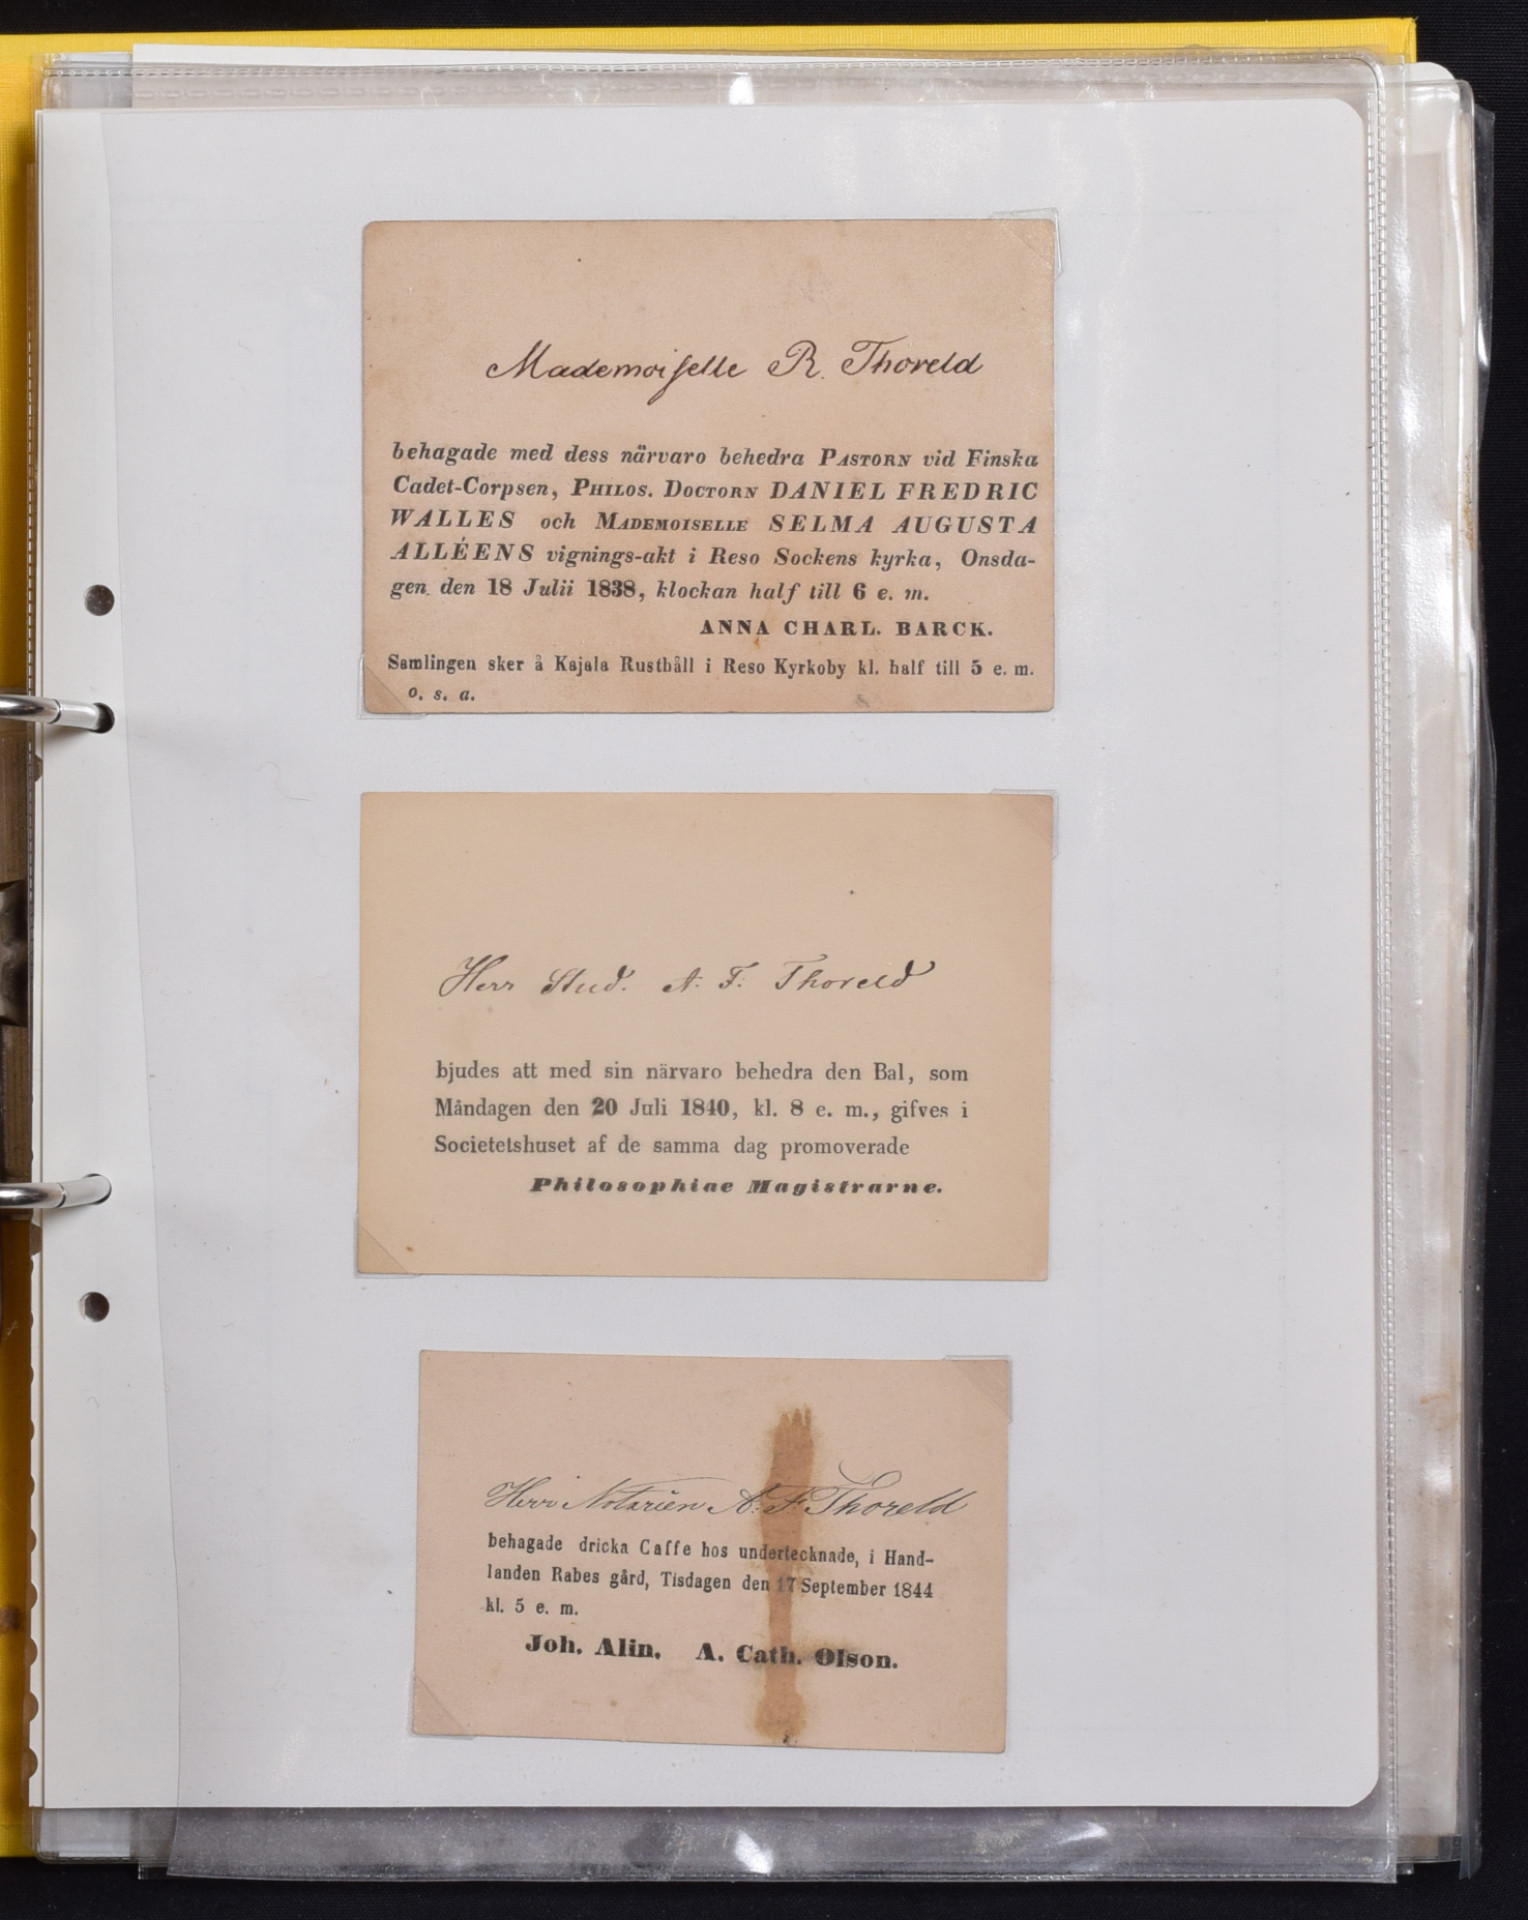 Mademoiselle R. Thoreld
behagade med dess närvaro behedra PASTORN vid Finska
Cadet-Corpsen, PHILOS. DOCTORN DANIEL FREDRIC
WALLES och MADEMOISELLE SELMA AUGUSTA
ALLÉENS vignings-akt i Reso Sockens kyrka, Onsda-
gen den 18 Julii 1838, klockan half till 6 e. m.
ANNA CHARL. BARCK.
Samlingen sker å Kajala Rusthåll i Reso Kyrkoby kl. half till 5 e. m.
o. s. a.
Herr Stud. A. F. Thoreld
bjudes att med sin närvaro behedra den Bal, som
Måndagen den 20 Juli 1840, kl. 8 e. m., gifves i
Societetshuset af de samma dag promoverade
Philosophiae Magistrarne.
Herr Notarien A. F. Thoreld
behagade dricka Caffe hos undertecknade, i Hand-
landen Rabes gård, Tisdagen den 17 September 1844
kl. 5 e. m.
Joh. Alin. A. Cath. Olson.